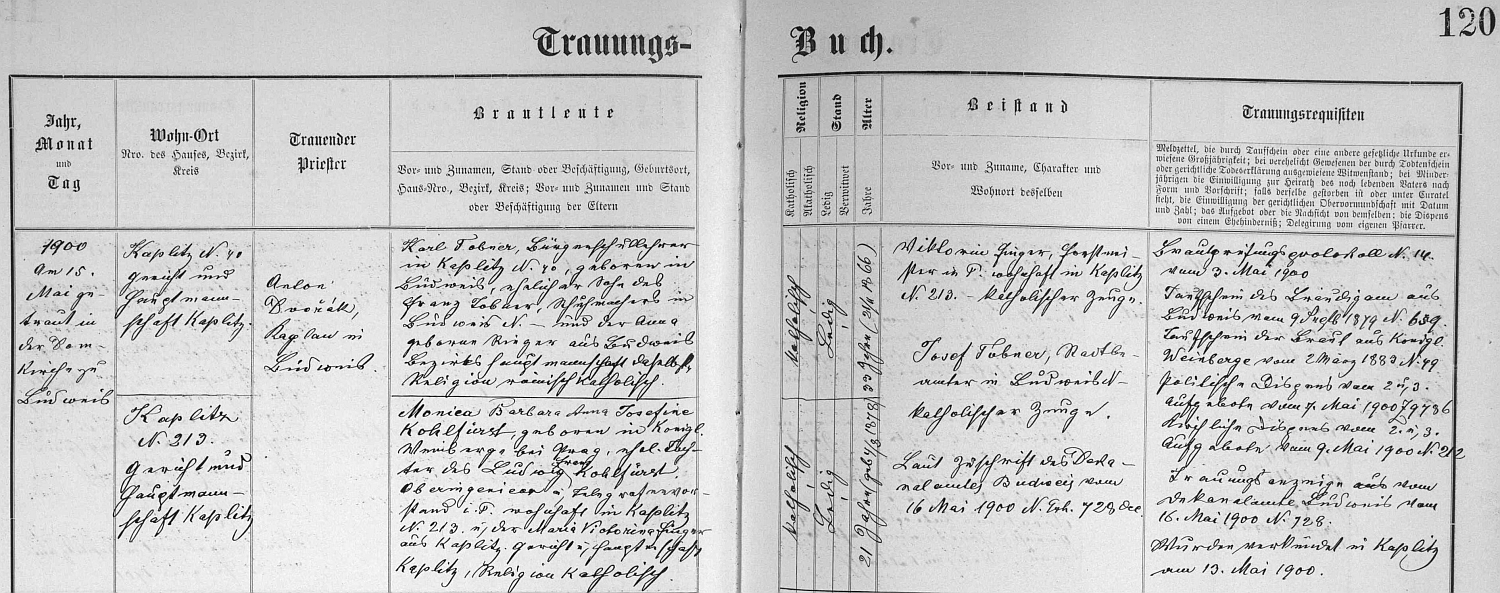 120
Trauungs-
Buch.
Jahr,
Monat
und
Tag
Wohn-Ort
Nro. des Hauses, Bezirk,
Kreis
Trauender
Priester
Brautleute
Vor- und Zunamen, Stand oder Beschäftigung, Geburtsort,
Haus-Nro., Bezirk, Kreis; Vor- und Zunamen und Stand
oder Beschäftigung der Eltern
Religion
Katholisch
Akatholisch
Stand
Ledig
Verwitwet
Alter
Jahre
Beistand
Vor- und Zuname, Charakter und
Wohnort desselben
Trauungsrequisiten
Meldzettel, die durch Taufschein oder eine andere gesetzliche Urkunde er-
wiesene Großjährigkeit; bei verehelicht Gewesenen der durch Todtenschein
oder gerichtliche Todeserklärung ausgewiesene Witwenstand; bei Minder-
jährigen die Einwilligung zur Heirath des noch lebenden Vaters nach
Form und Vorschrift; falls derselbe gestorben ist oder unter Curatel
steht, die Einwilligung der gerichtlichen Obervormundschaft mit Datum
und Zahl; das Aufgebot oder die Nachsicht von demselben; die Dispens
von einem Ehehinderniß; Delegirung vom eigenen Pfarrer.
1900
Am 15.
Mai ge-
traut in
der Dom-
kirche zu
Budweis
Kaplitz N. 40
Gericht und
Hauptmann-
schaft Kaplitz.
Dvořák,
Kaplan in
Budweis.
Karl Tobner, Bürgerschullehrer
in Kaplitz N. 40, geboren in
Budweis, ehelicher Sohn des
Franz Tobner, Schuhmachers in
Budweis N. – und der Anna
geborne Rieger aus Budweis
Bezirkshauptmannschaft daselbst,
Religion römisch katholisch.
Katholisch
Ledig
33 Jahre
Viktorin Finger, Forstmei-
ster in P. wohnhaft in Kaplitz
N. 213. – katholischer Zeuge.
Josef Tobner, Stadtbe-
amter in Budweis N –
katholischer Zeuge.
Laut Zuschrift des Deka-
nalamtes Budweis vom
16 Mai 1900 N. 728
Brautprüfungsprotokoll N. 14.
vom 3. Mai 1900
Taufschein des Bräutigam aus
Budweis vom 9 1879 N. 659.
Taufschein der Braut aus Königl.
Weinberge vom 2 März 1883 N. 49
Politische Dispens vom 2 u. 3.
Aufgebote vom 7. Mai 1900 Z 9736
Kirchliche Dispens vom 2. u. 3.
Aufgebote vom 9. Mai 1900 N. 212
Trauungsanzeige aus vom
Dekanalamte Budweis vom
16. Mai 1900 N. 728.
Wurden verkündet in Kaplitz
am 13. Mai 1900.
Kaplitz
N. 213.
Gericht und
Hauptmann-
schaft Kaplitz
Monica Barbara Anna Josefine
Kohlfürst, geboren in Königl.
Weinberge bei Prag, ehel. Toch-
ter des Ludwig Franz Kohlfürst,
Oberingenieur u. Telegrafenvor-
stand i. P. wohnhaft in Kaplitz
N. 213. u. der Maria Victorine Finger
aus Kaplitz. Gericht u. Hauptmschaft
Kaplitz, Religion katholisch.
Katholisch
Ledig
21 Jahre